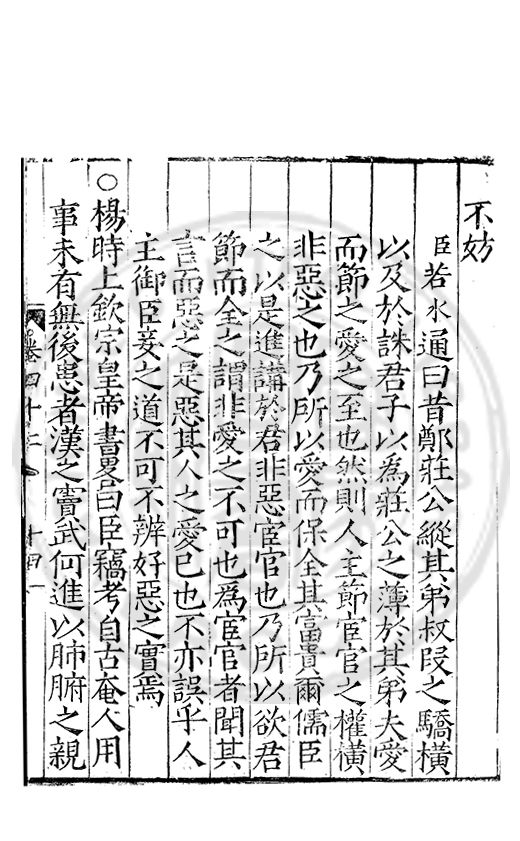 不妨
臣若水通曰昔鄭莊公縱其弟叔段之驕橫
以及於誅君子以爲莊公之薄於其弟夫愛
而節之愛之至也然則人主節宦官之權橫
非惡之也乃所以愛而保全其富貴爾儒臣
之以是進講於君非惡宦官也乃所以欲君
節而全之謂非愛之不可也爲宦官者聞其
言而惡之是惡其人之愛已也不亦誤乎人
主御臣妾之道不可不辨好惡之實焉
○楊時上欽宗皇帝書畧曰臣竊考自古奄人用
事未有無後患者漢之竇武何進以肺腑之親
卷四十三 十四